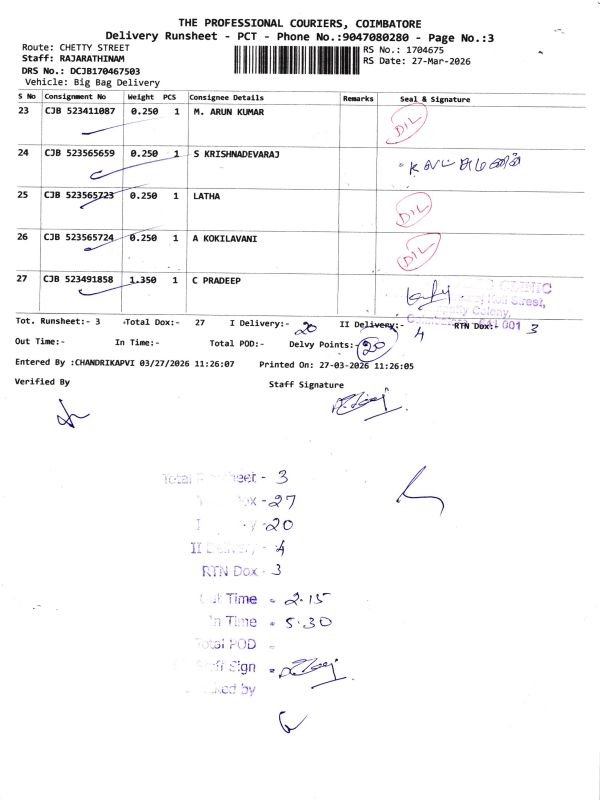 THE PROFESSIONAL COURIERS, COIMBATORE
Delivery Runsheet - PCT - Phone No.:9047080280 - Page No.:3
Route: CHETTY STREET
RS No.: 1704675
Staff: RAJARATHINAM
RS Date: 27-Mar-2026
DRS No.: DCJB170467503
Vehicle: Big Bag Delivery
S No Consignment No Weight PCS Consignee Details Remarks Seal & Signature
23 CJB 523411087 0.250 1 M. ARUN KUMAR DIL
24 CJB 523565659 0.250 1 S KRISHNADEVARAJ
25 CJB 523565723 0.250 1 LATHA DIL
26 CJB 523565724 0.250 1 A KOKILAVANI DIL
27 CJB 523491858 1.350 1 C PRADEEP
CLINIC
Street,
Colony,
001
Tot. Runsheet:- 3 Total Dox:- 27 I Delivery:- 20 II Delivery:- 4 RTN Dox:- 3
Out Time:- In Time:- Total POD:- Delvy Points:- 20
Entered By :CHANDRIKAPVI 03/27/2026 11:26:07 Printed On: 27-03-2026 11:26:05
Verified By Staff Signature
Total Runsheet - 3
Dox - 27
I - 20
II Delivery - 4
RTN Dox - 3
Out Time - 2.15
In Time - 5.30
Total POD -
Staff Sign -
by